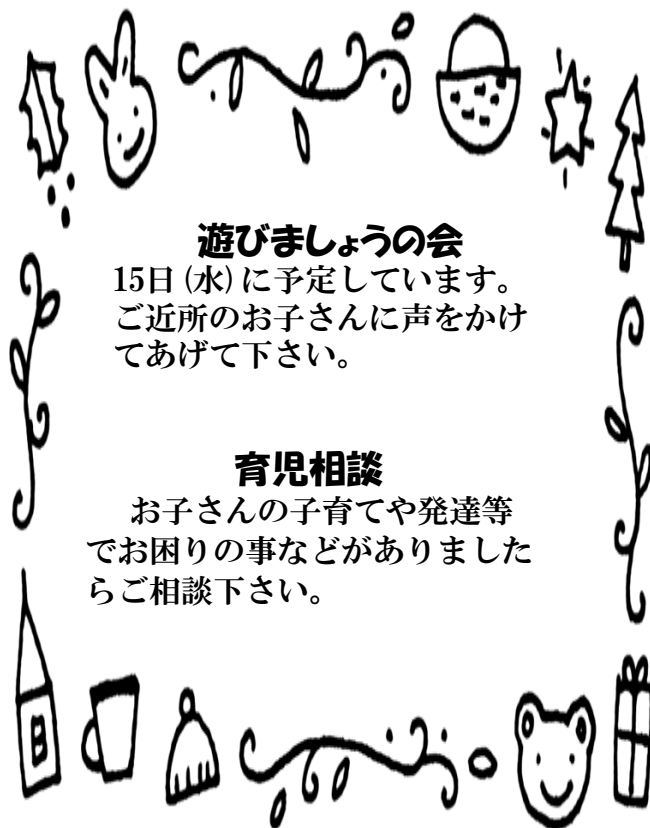 遊びましょうの会
15日(水)に予定しています。
ご近所のお子さんに声をかけ
てあげて下さい。
育児相談
お子さんの子育てや発達等
でお困りの事などがありました
らご相談下さい。